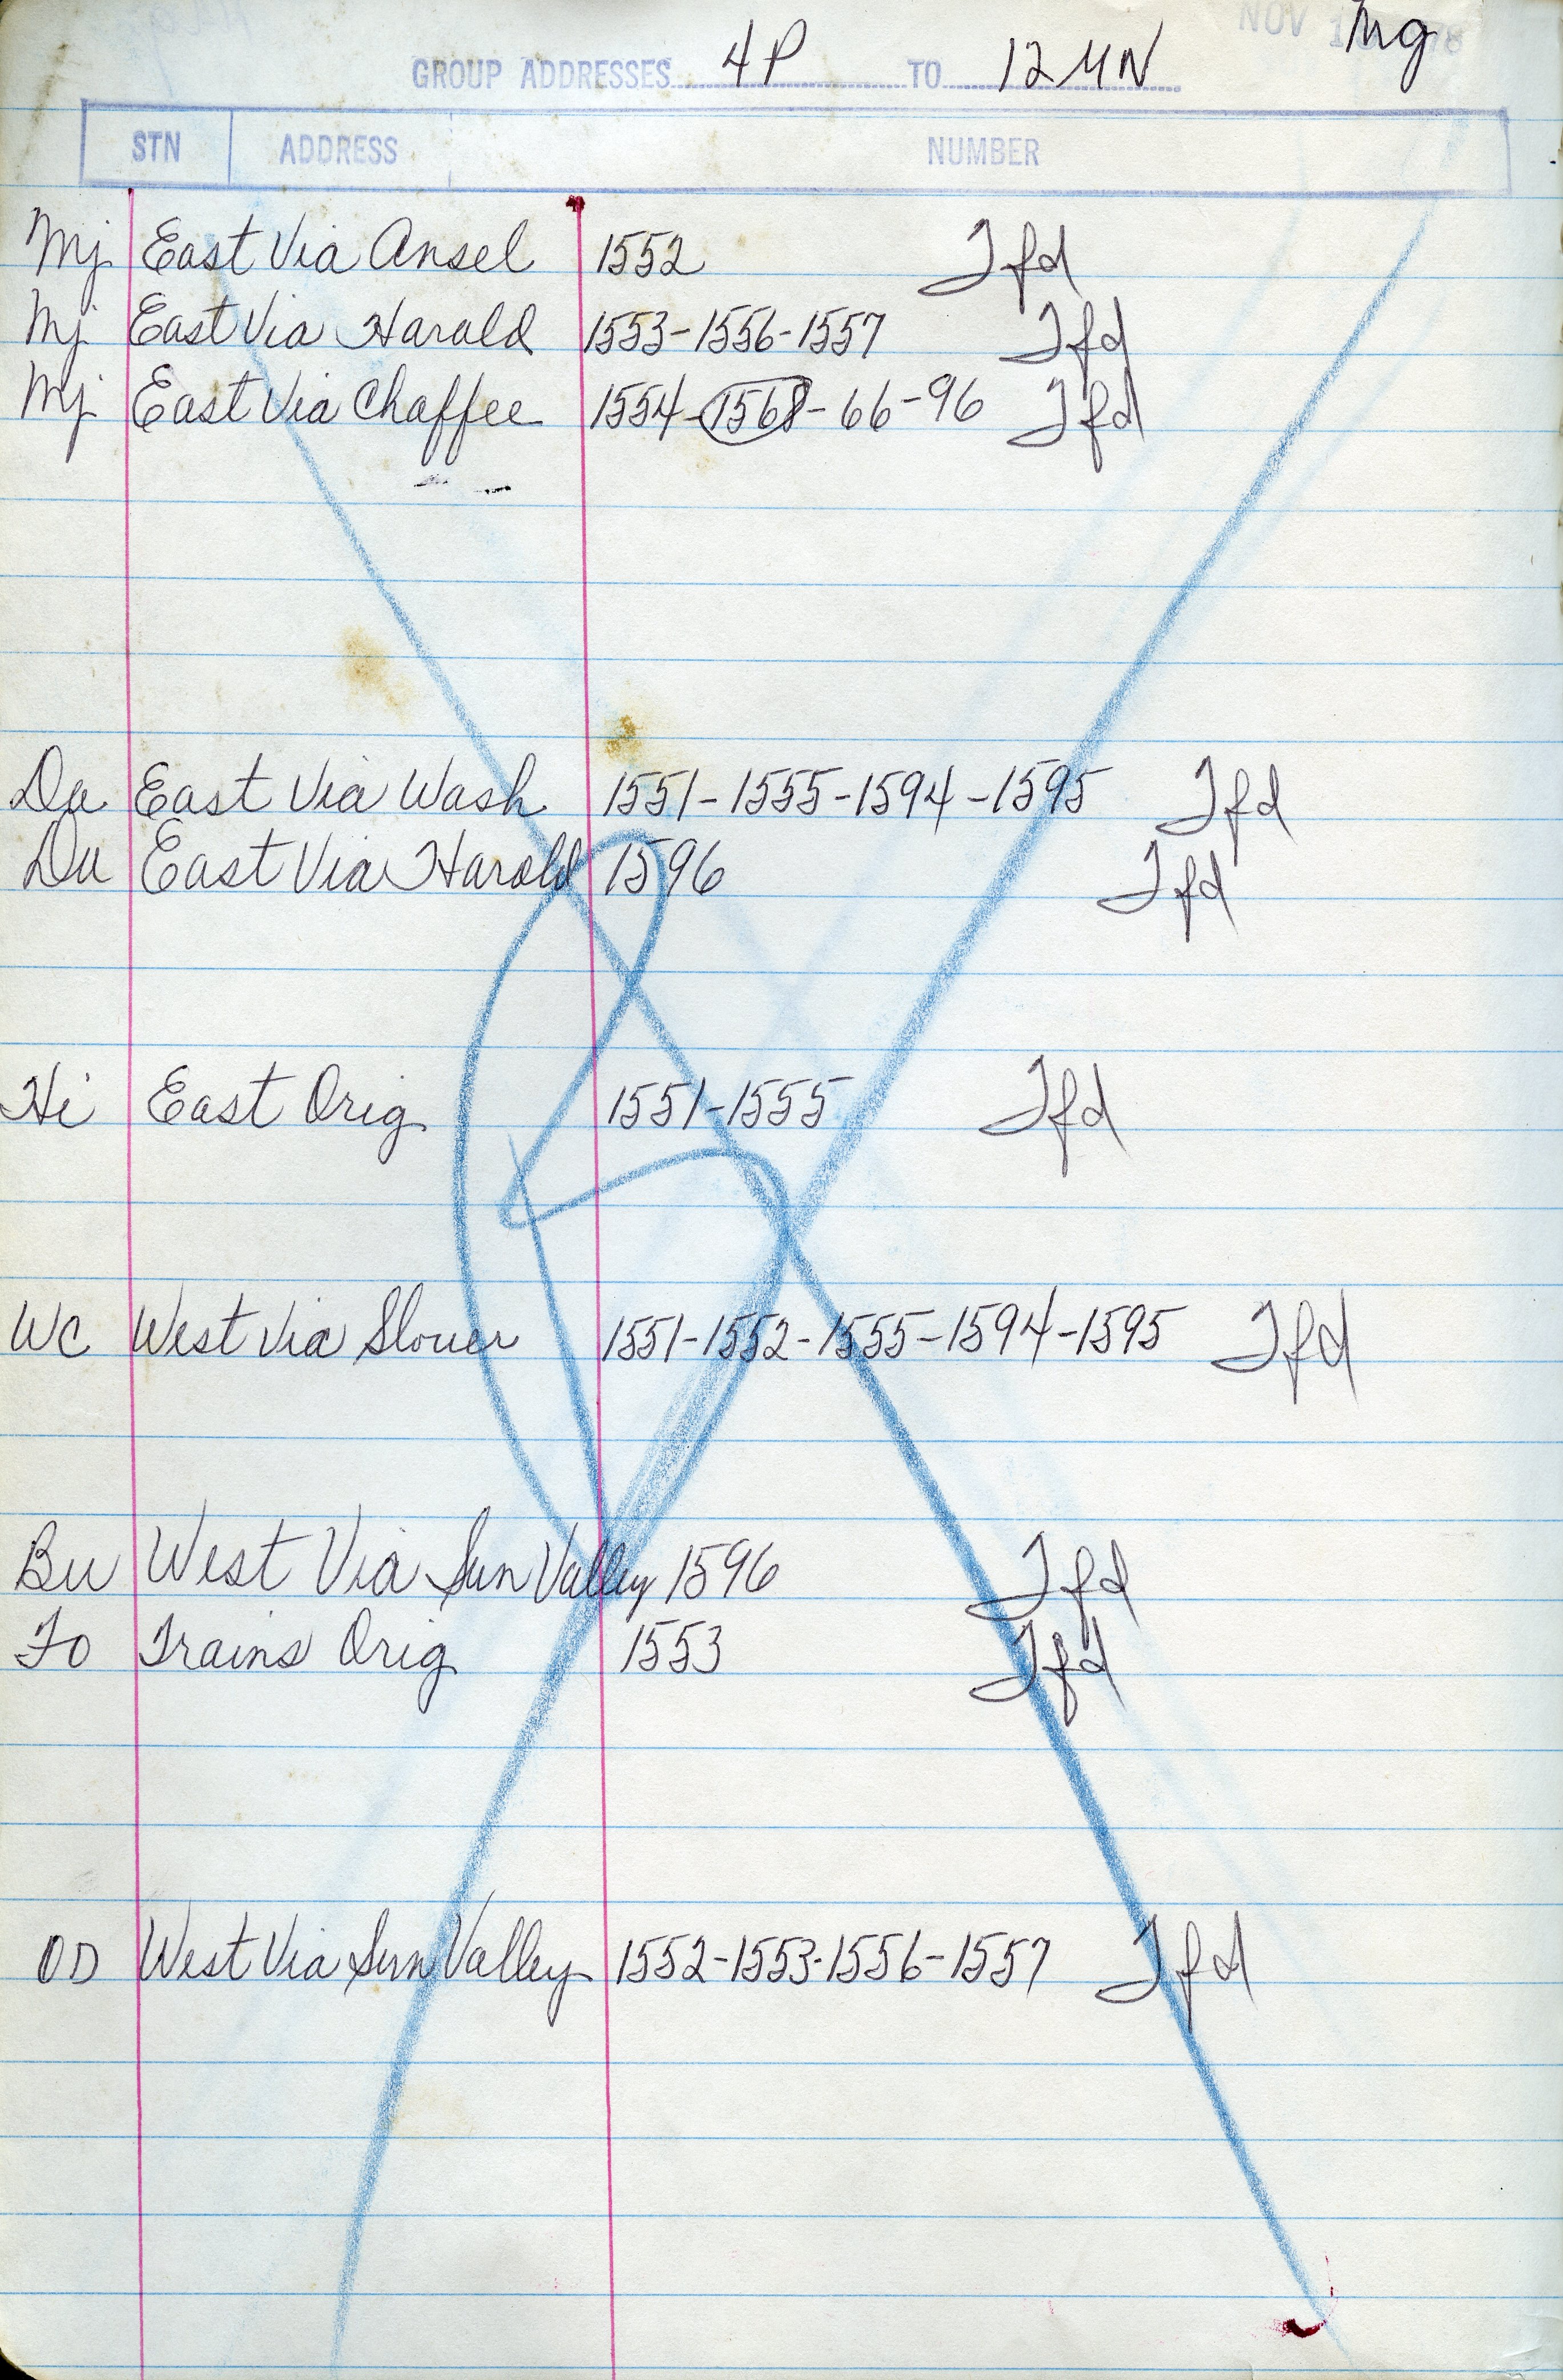 NOV 78 Mg
GROUP ADDRESSES 4P TO 12 MN
STN ADDRESS NUMBER
Mj East Via Ansel 1552 Tfd
Mj East Via Harold 1553-1556-1557 Tfd
Mj East Via Chaffee 1554-1568-66-96 Tfd
Du East Via Wash 1551-1555-1594-1595 Tfd
Du East Via Harold 1596 Tfd
Hi East Orig 1551-1555 Tfd
WC West Via Slover 1551-1552-1555-1594-1595 Tfd
Bu West Via Sun Valley 1596 Tfd
Fo Trains Orig 1553 Tfd
OD West Via Sun Valley 1552-1553-1556-1557 Tfd